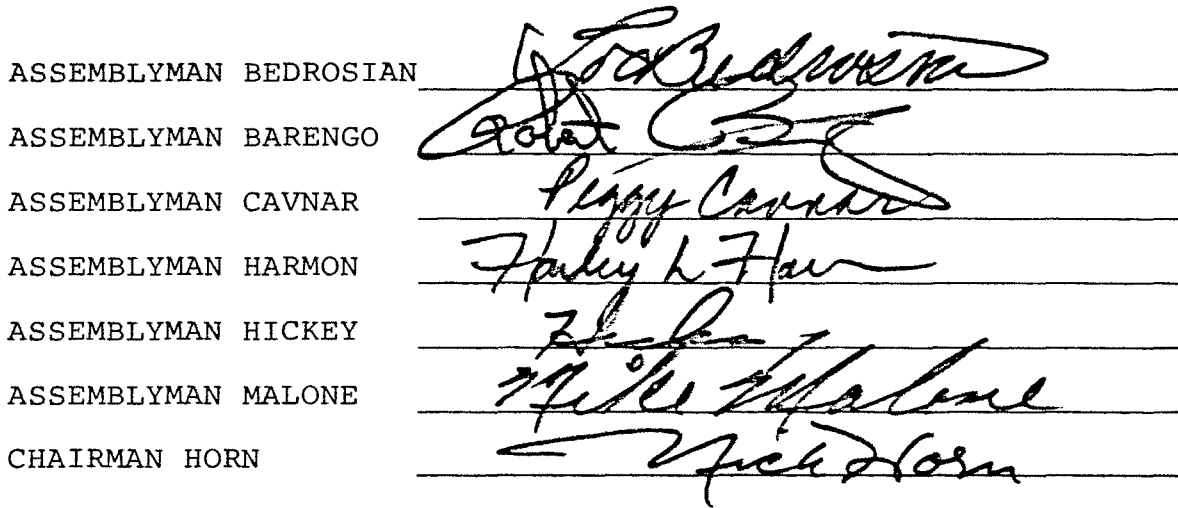 ASSEMBLYMAN BEDROSIAN Bedrosian
ASSEMBLYMAN BARENGO Robert
ASSEMBLYMAN CAVNAR Peggy Cavnar
ASSEMBLYMAN HARMON Harley L Har
ASSEMBLYMAN HICKEY
ASSEMBLYMAN MALONE Mike Malone
CHAIRMAN HORN Nick Horn